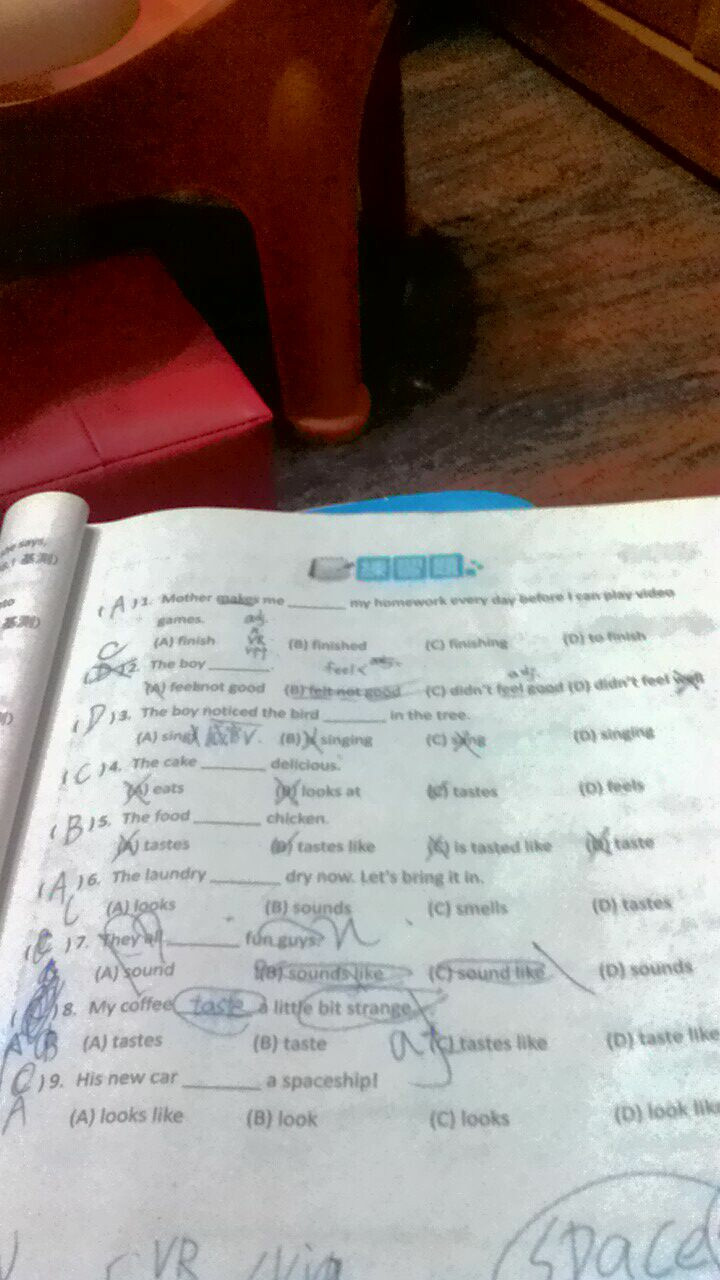 基測)
基測)
課四題
(A)1. Mother makes me ______ my homework every day before I can play video
games. adj.
(A) finish (B) finished (C) finishing (D) to finish
C
2. The boy ______. feel< adj.
(A) feelnot good (B) felt not good (C) didn't feel good (D) didn't feel well
adj.
(D)3. The boy noticed the bird ______ in the tree.
(A) sing (B) singing (C) sing (D) singing
(C)4. The cake ______ delicious.
(A) eats (B) looks at (C) tastes (D) feels
(B)5. The food ______ chicken.
(A) tastes (B) tastes like (C) is tasted like (D) taste
(A)6. The laundry ______ dry now. Let's bring it in.
(A) looks (B) sounds (C) smells (D) tastes
C
7. They all ______ fun guys? n
(A) sound (B) sounds like (C) sound like (D) sounds
8. My coffee taste a little bit strange.
A B (A) tastes (B) taste adj (C) tastes like (D) taste like
(C)9. His new car ______ a spaceship!
A (A) looks like (B) look (C) looks (D) look like
VR
space